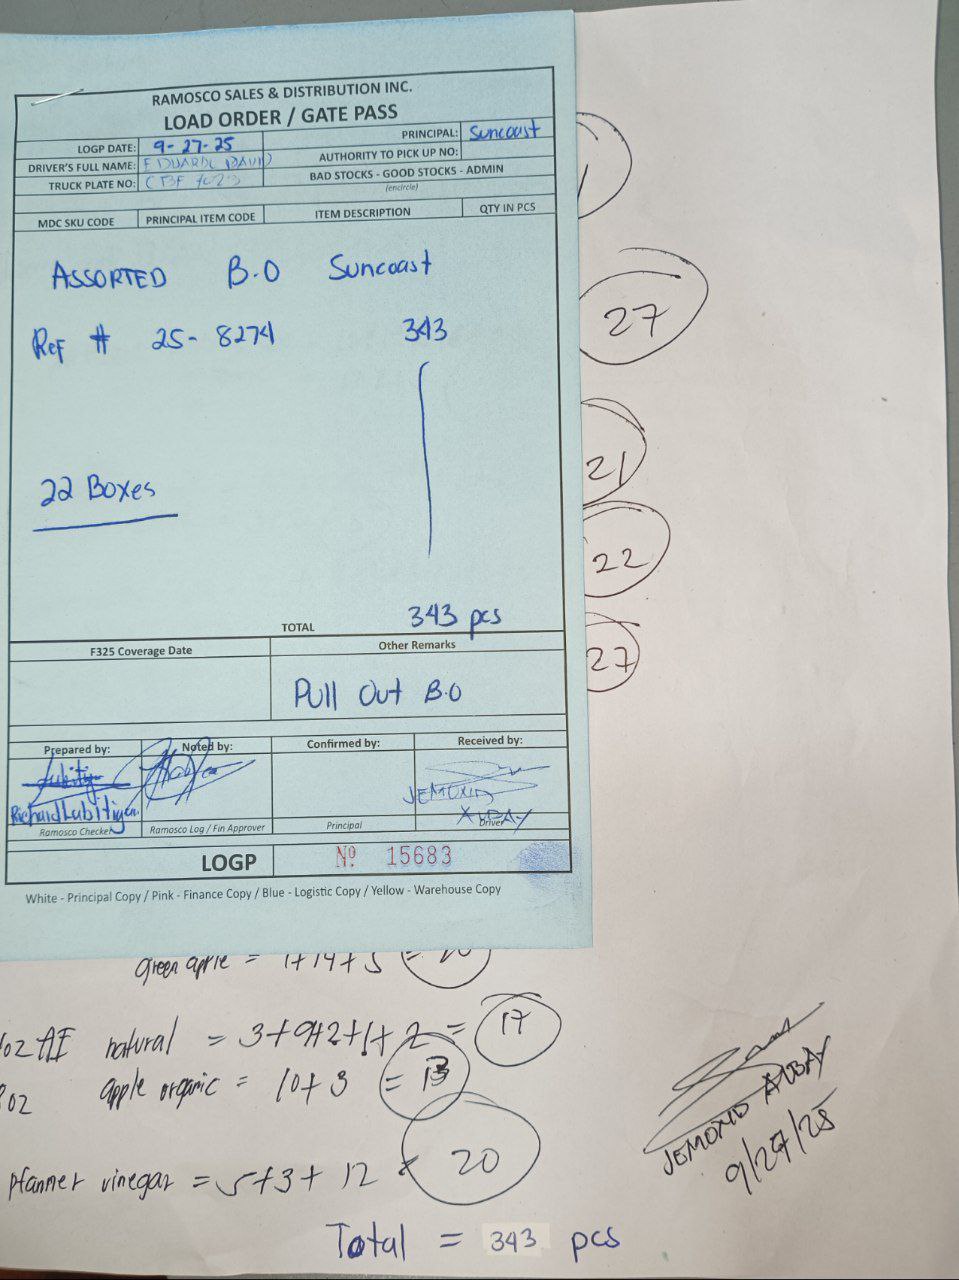 RAMOSCO SALES & DISTRIBUTION INC.
LOAD ORDER / GATE PASS
LOGP DATE: 9-27-25 PRINCIPAL: Suncoast
DRIVER'S FULL NAME: EDUARDO DAVID AUTHORITY TO PICK UP NO:
TRUCK PLATE NO: BAD STOCKS - GOOD STOCKS - ADMIN
(encircle)
MDC SKU CODE PRINCIPAL ITEM CODE ITEM DESCRIPTION QTY IN PCS
ASSORTED B.O Suncoast
Ref # 25-8274 343
27
21
22 Boxes
22
TOTAL 343 pcs
27
F325 Coverage Date Other Remarks
Pull Out B.O
Prepared by: Noted by: Confirmed by: Received by:
JEMOND
Richard Lubitigan ALBAY
Ramosco Checker Ramosco Log / Fin Approver Principal Driver
LOGP Nº 15683
White - Principal Copy / Pink - Finance Copy / Blue - Logistic Copy / Yellow - Warehouse Copy
green apple = 1+14+5 = 20
natural = 3+9+2+1+2 = 17
apple organic = 10+3 = 13
JEMOND ALBAY
9/27/25
Pfanner vinegar = 5+3+12 = 20
Total = 343 pcs